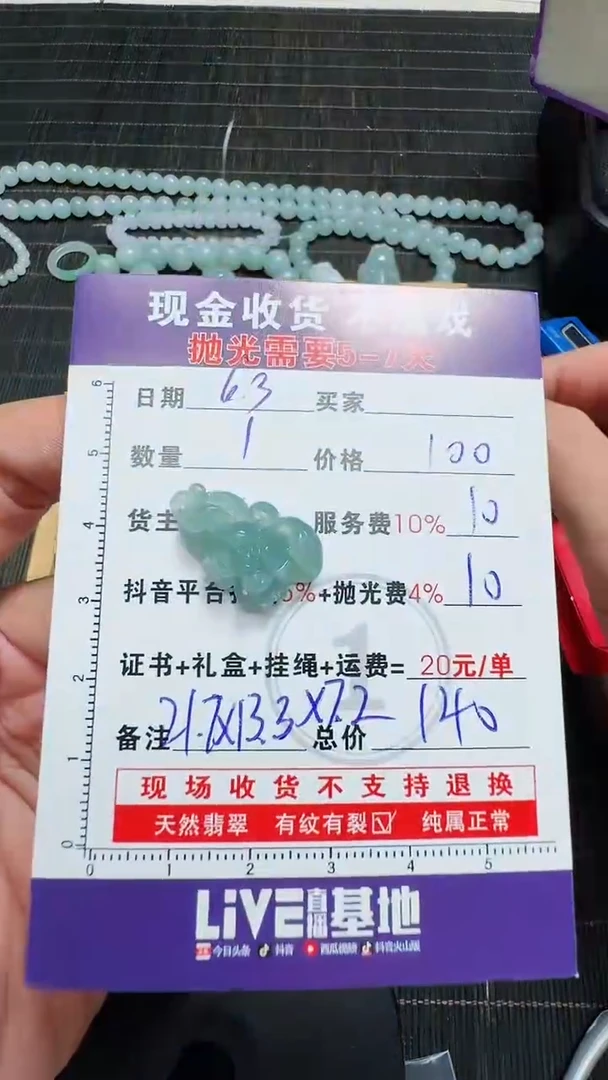 现金收货
抛光需要5-7天
日期 6.3 买家
数量 1 价格 100
货主 服务费10% 10
抖音平台 5%+抛光费4% 10
证书+礼盒+挂绳+运费= 20元/单
备注 21.7X13.3X7.2 总价 140
现场收货不支持退换
天然翡翠 有纹有裂☑ 纯属正常
LIVE直播基地
今日头条 抖音 西瓜视频 抖音火山版
6
5
4
3
2
1
0
0 1 2 3 4 5
1